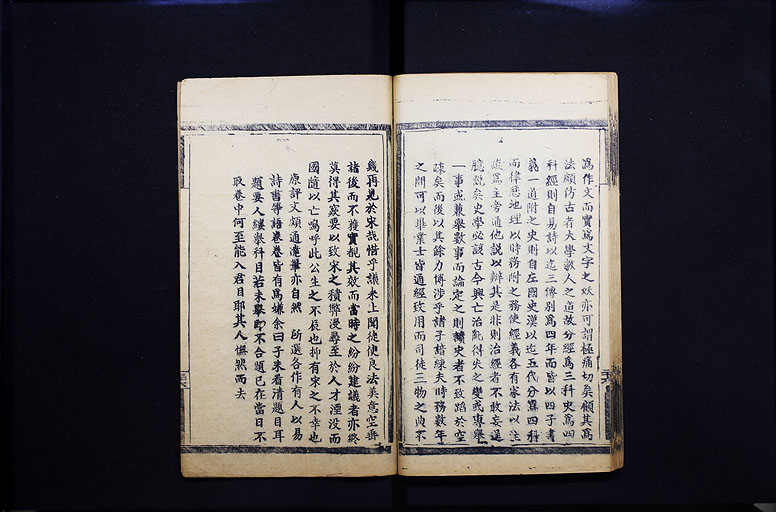 為作文而實為文字之妖亦可謂極痛切矣顧其為
法頗仿古者大學教人之道故分經為三科史為四
科經則自易詩以迄三傳別為四年而皆以四子書
義一道附之史則自左國史漢以迄五代分為四科
而律歷地理以時務附之務使經義各有家法以主
疏為主旁通他說以辨其是非則治經者不敢妄逞
臆說矣史學必該古今興亡治亂得失之變或專舉
一事或兼舉數事而論定之則讀史者不致蹈於空
疎矣而後以其餘力博涉乎諸子諳練夫時務數年
之間可以畢業士皆通經致用而司徒三物之典不
幾再見於宋哉惜乎議未上聞徒使良法美意空垂
諸後而不獲實覩其效而當時之紛紛建議者亦終
莫得其窾要以致宋之積弊浸尋至於人才湮沒而
國隨以亡嗚呼此公生之不辰也抑有宋之不幸也
原評文頗通達筆亦自然 所選各作有人以易
詩書等語卷卷皆有為嫌余曰子未看清題目耳
題要人縷舉科目若未舉即不合題已在當日不
取卷中何至能入君目耶其人憮然而去